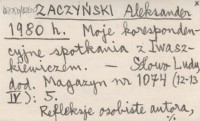 ZACZYŃSKI Aleksander
1980 h. Moje koresponden-
cyjne spotkania z Iwasz-
kiewiczem. — Słowo Ludu,
dod. Magazyn nr 1074 (12-13
IV): 5.
Refleksje osobiste autora,